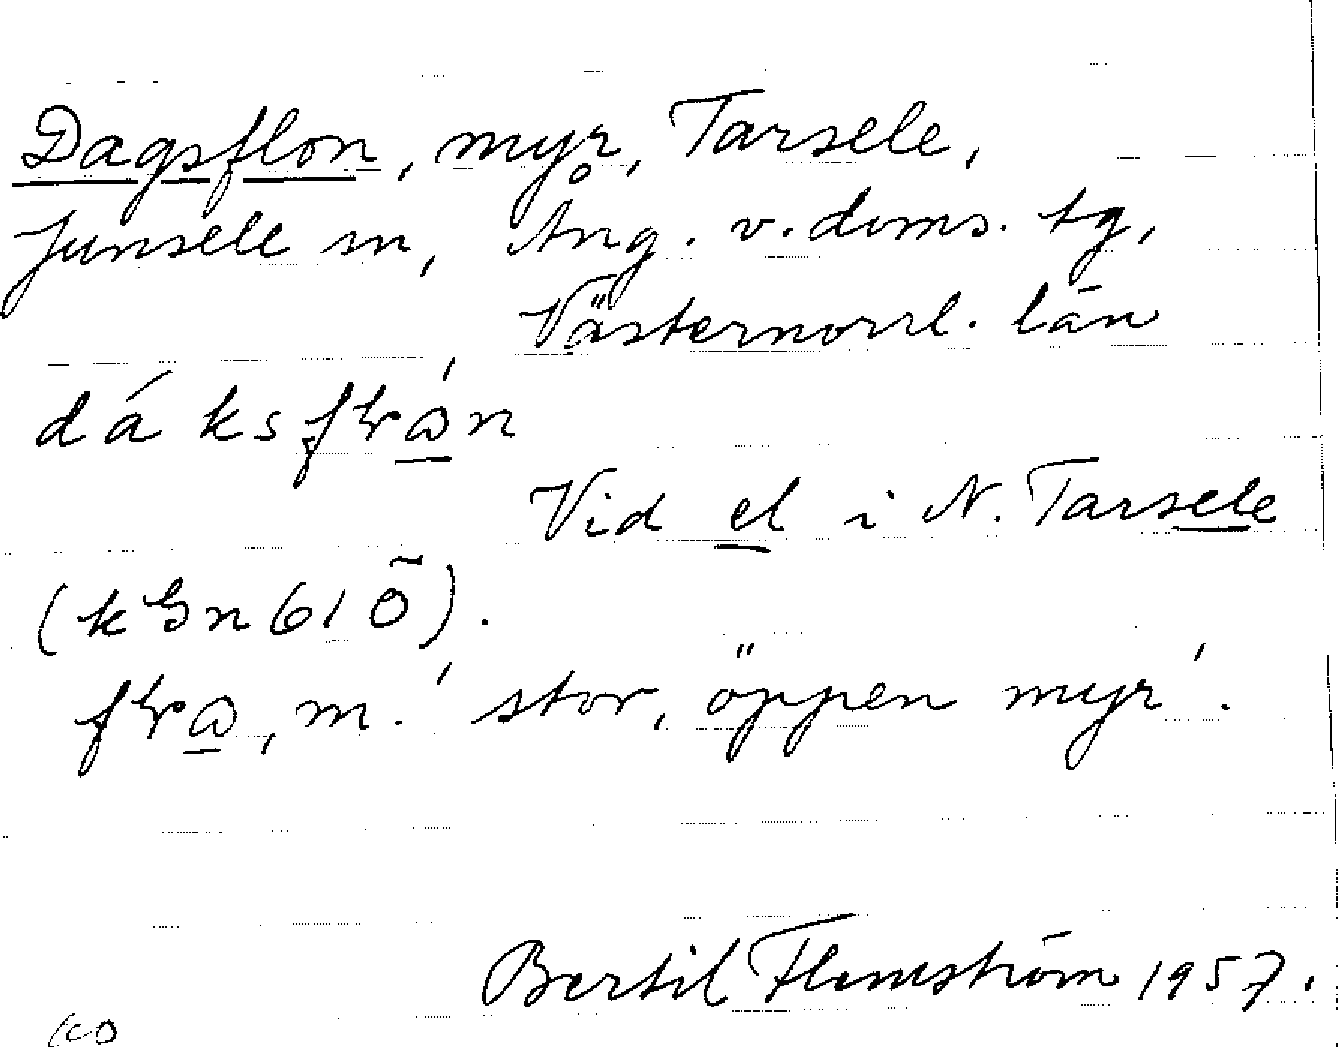 Dagsflon, myr, Tarsele,
Junsele sn, Ång. v. doms. tg,
Västernorrl. län
Vid el i N. Tarsele
m. ' stor, öppen myr'.
Bertil Flemström 1957.